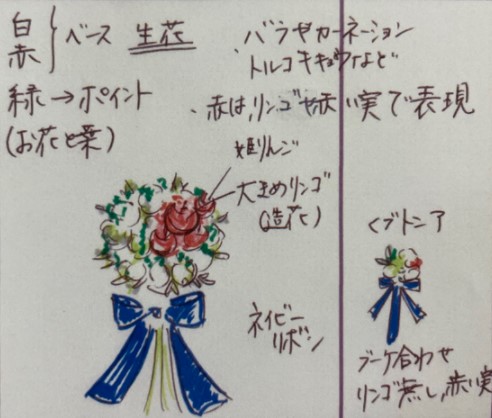 白
赤
ベース 生花
緑→ポイント
(お花と葉)
・バラやカーネーション
トルコキキョウなど
・赤は、リンゴや赤い実で表現
姫りんご
大きめリンゴ
(造花)
ネイビー
リボン
くブトニア
ブーケ合わせ
リンゴ無し、赤い実